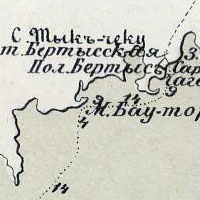 С. Тыкъ-чеку
т. Бертысская
Пол. Бертысъ
З.
Сар
Чаге
9
9
14
М. Бау-тор
4
14